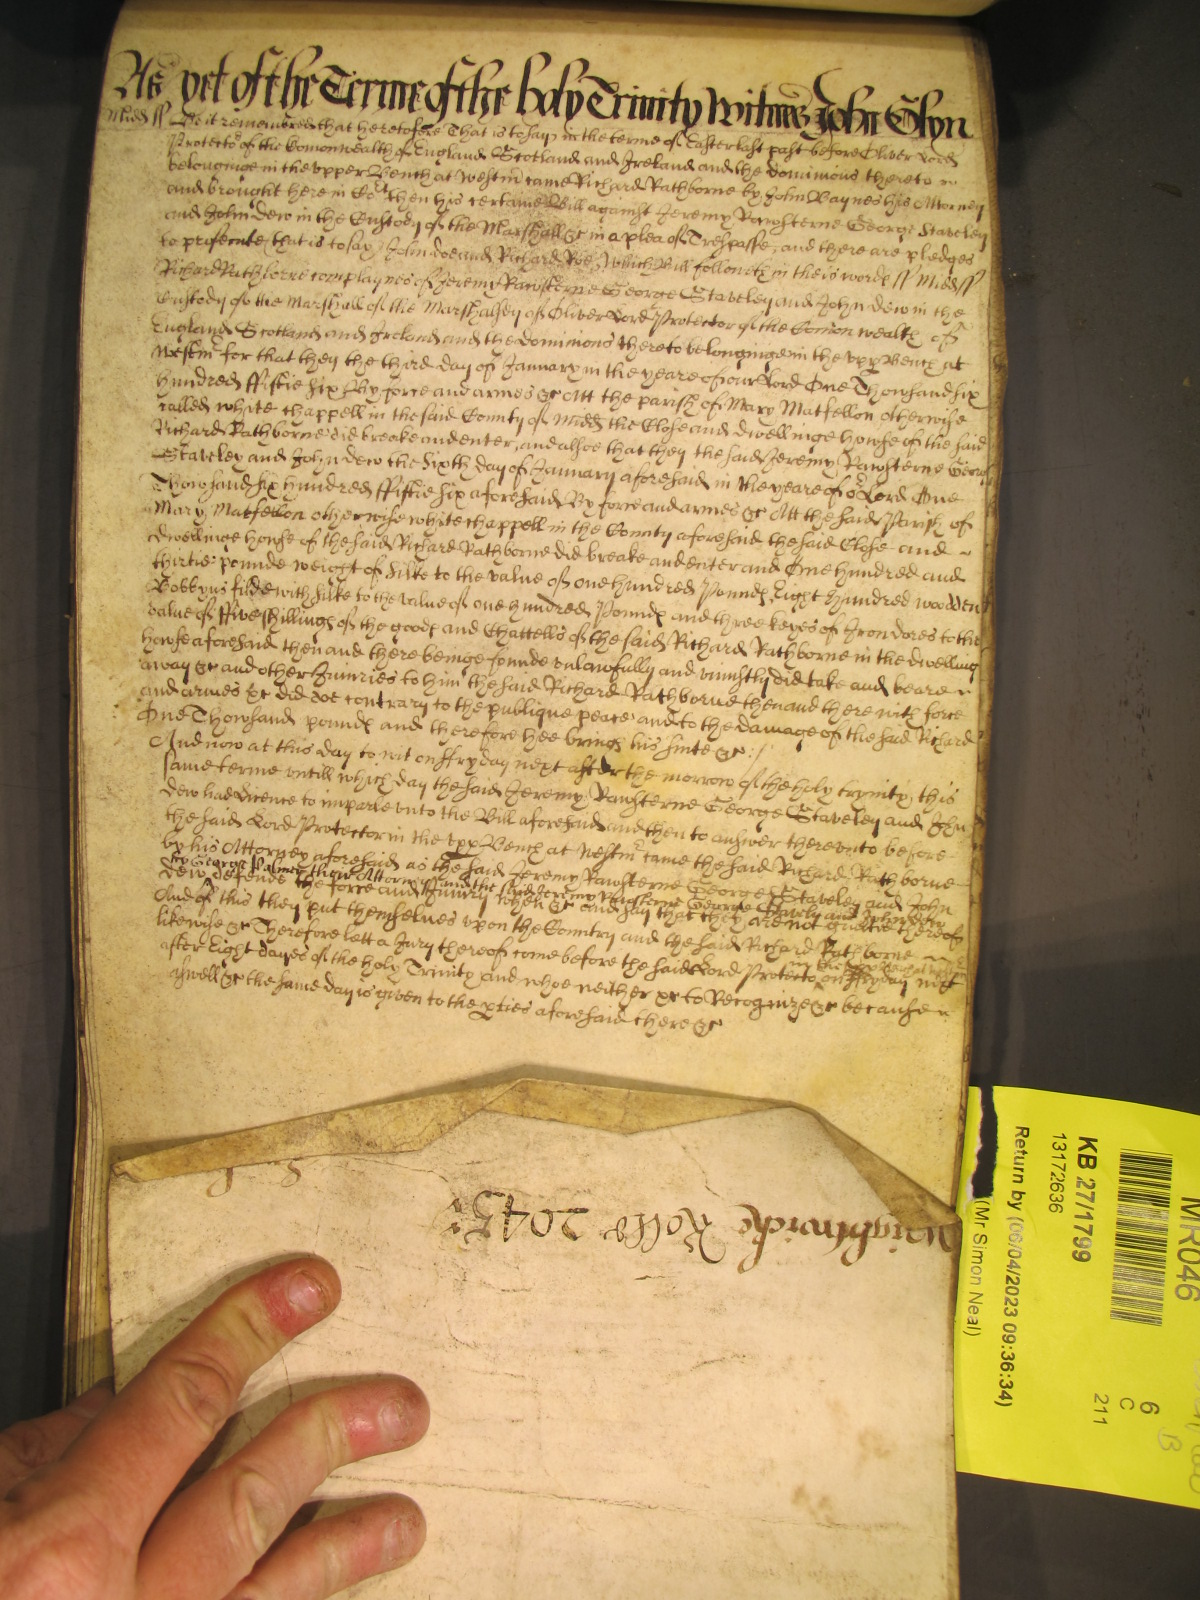 As yet of the Terme of the holy Trinity Witnes John Glyn
Midd ss Be it remembred that heretofore That is to say in the terme of Easter last past before Oliver Lord
Protector of the Comonwealth of England Scotland and Ireland and the dominions thereto
belonginge in the upper Bench at Westm came Richard Rathborne by John Baynes his Attorney
and brought here in Cot then his certaine Bill against Jeremy Rawsterne George Staveley
and John Dew in the Custody of the Marshall &c in a plea of Trespasse, and there are pledges
to prosecute, that is to say John doe and Richard Roe, which Bill followeth in theis words ss Midd ss
Richard Rathborne complaynes of Jeremy Rawsterne George Staveley and John dew in the
Custody of the Marshall of the Marshalsey of Oliver Lord Protector of the Comon wealth of
England Scotland and Ireland and the dominions thereto belonginge in the upp Bench at
Westm for that they the third day of January in the yeare of our Lord One Thowsand six
hundred ffiftie six By force and armes &c Att the parish of Mary Matfellon otherwise
called white chappell in the said County of Midd the Close and dwellinge howse of the said
Richard Rathborne did breake and enter, and alsoe that they the said Jeremy Rawsterne George
Staveley and John dew the Sixth day of January aforesaid in the yeare of or Lord One
Thowsand six hundred ffiftie six aforesaid By force and armes &c Att the said Parish of
Mary Matfellon otherwise white chappell in the County aforesaid the said Close and
dwellinge howse of the said Richard Rathborne did breake and enter and One hundred and
thirtie pounde weight of silke to the value of one hundred Pounds Eight hundred wodden
Bobbyns filde with silke to the value of one hundred Pounds and three keyes of Iron dores to the
value of ffive shillings of the goods and Chattells of the said Richard Rathborne in the dwelling
howse aforesaid then and there beinge founde unlawfully and uniustly did take and beare
away &c and other Iniuries to him the said Richard Rathborne then and there with force
and armes &c did doe contrary to the publique peace and to the damage of the said Richard
One Thowsand pounds and therefore hee brings his suite &c
And now at this day to wit on ffryday next after the morrow of the holy trynity, this
same terme untill which day the said Jeremy Rawsterne George Staveley and John
dew had licence to imparle unto the Bill aforesaid and then to answer thereunto before
the said Lord Protector in the upp Bench at Westm came the said Richard Rathborne
by his Attorney aforesaid as the said Jeremy Rawsterne George Staveley and John
by George Palmer their Attorney and the said Jeremy Rawsterne George Stavely and John dew
dew defende the force and Iniury when &c and say that they are not guiltie thereof
And of this they put themselves upon the Country and the said Richard Rathborne
likewise &c Therefore lett a Jury thereof come before the said Lord Protector on ffryday next
in the upp Bench at Westm
after Eight dayes of the holy Trinity and whoe neither &c to Recognize &c because
aswell &c the same day is given to the pties aforesaid there &c
Wightwicke Rolls 2045
MR046
KB 27/1799
13172636
Return by (06/04/2023 09:36:34)
(Mr Simon Neal)
6
C
211